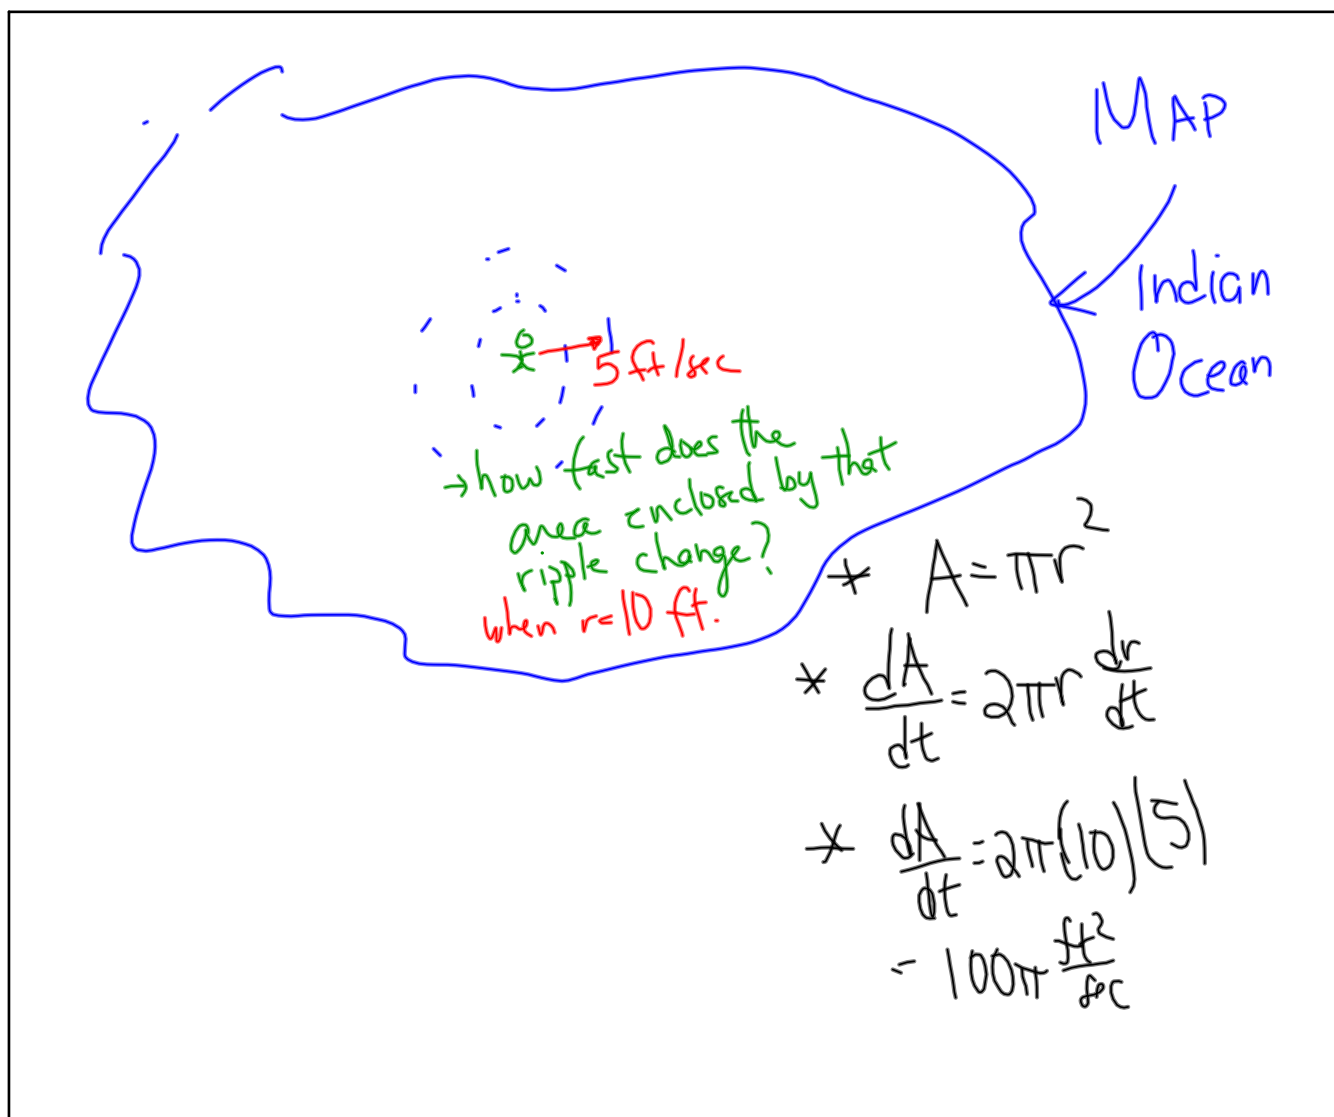 MAP
Indian
Ocean
5 ft/sec
→ how fast does the
area enclosed by that
ripple change?
when r=10 ft.
* A = πr²
* dA/dt = 2πr dr/dt
* dA/dt = 2π(10)(5)
= 100π ft²/sec